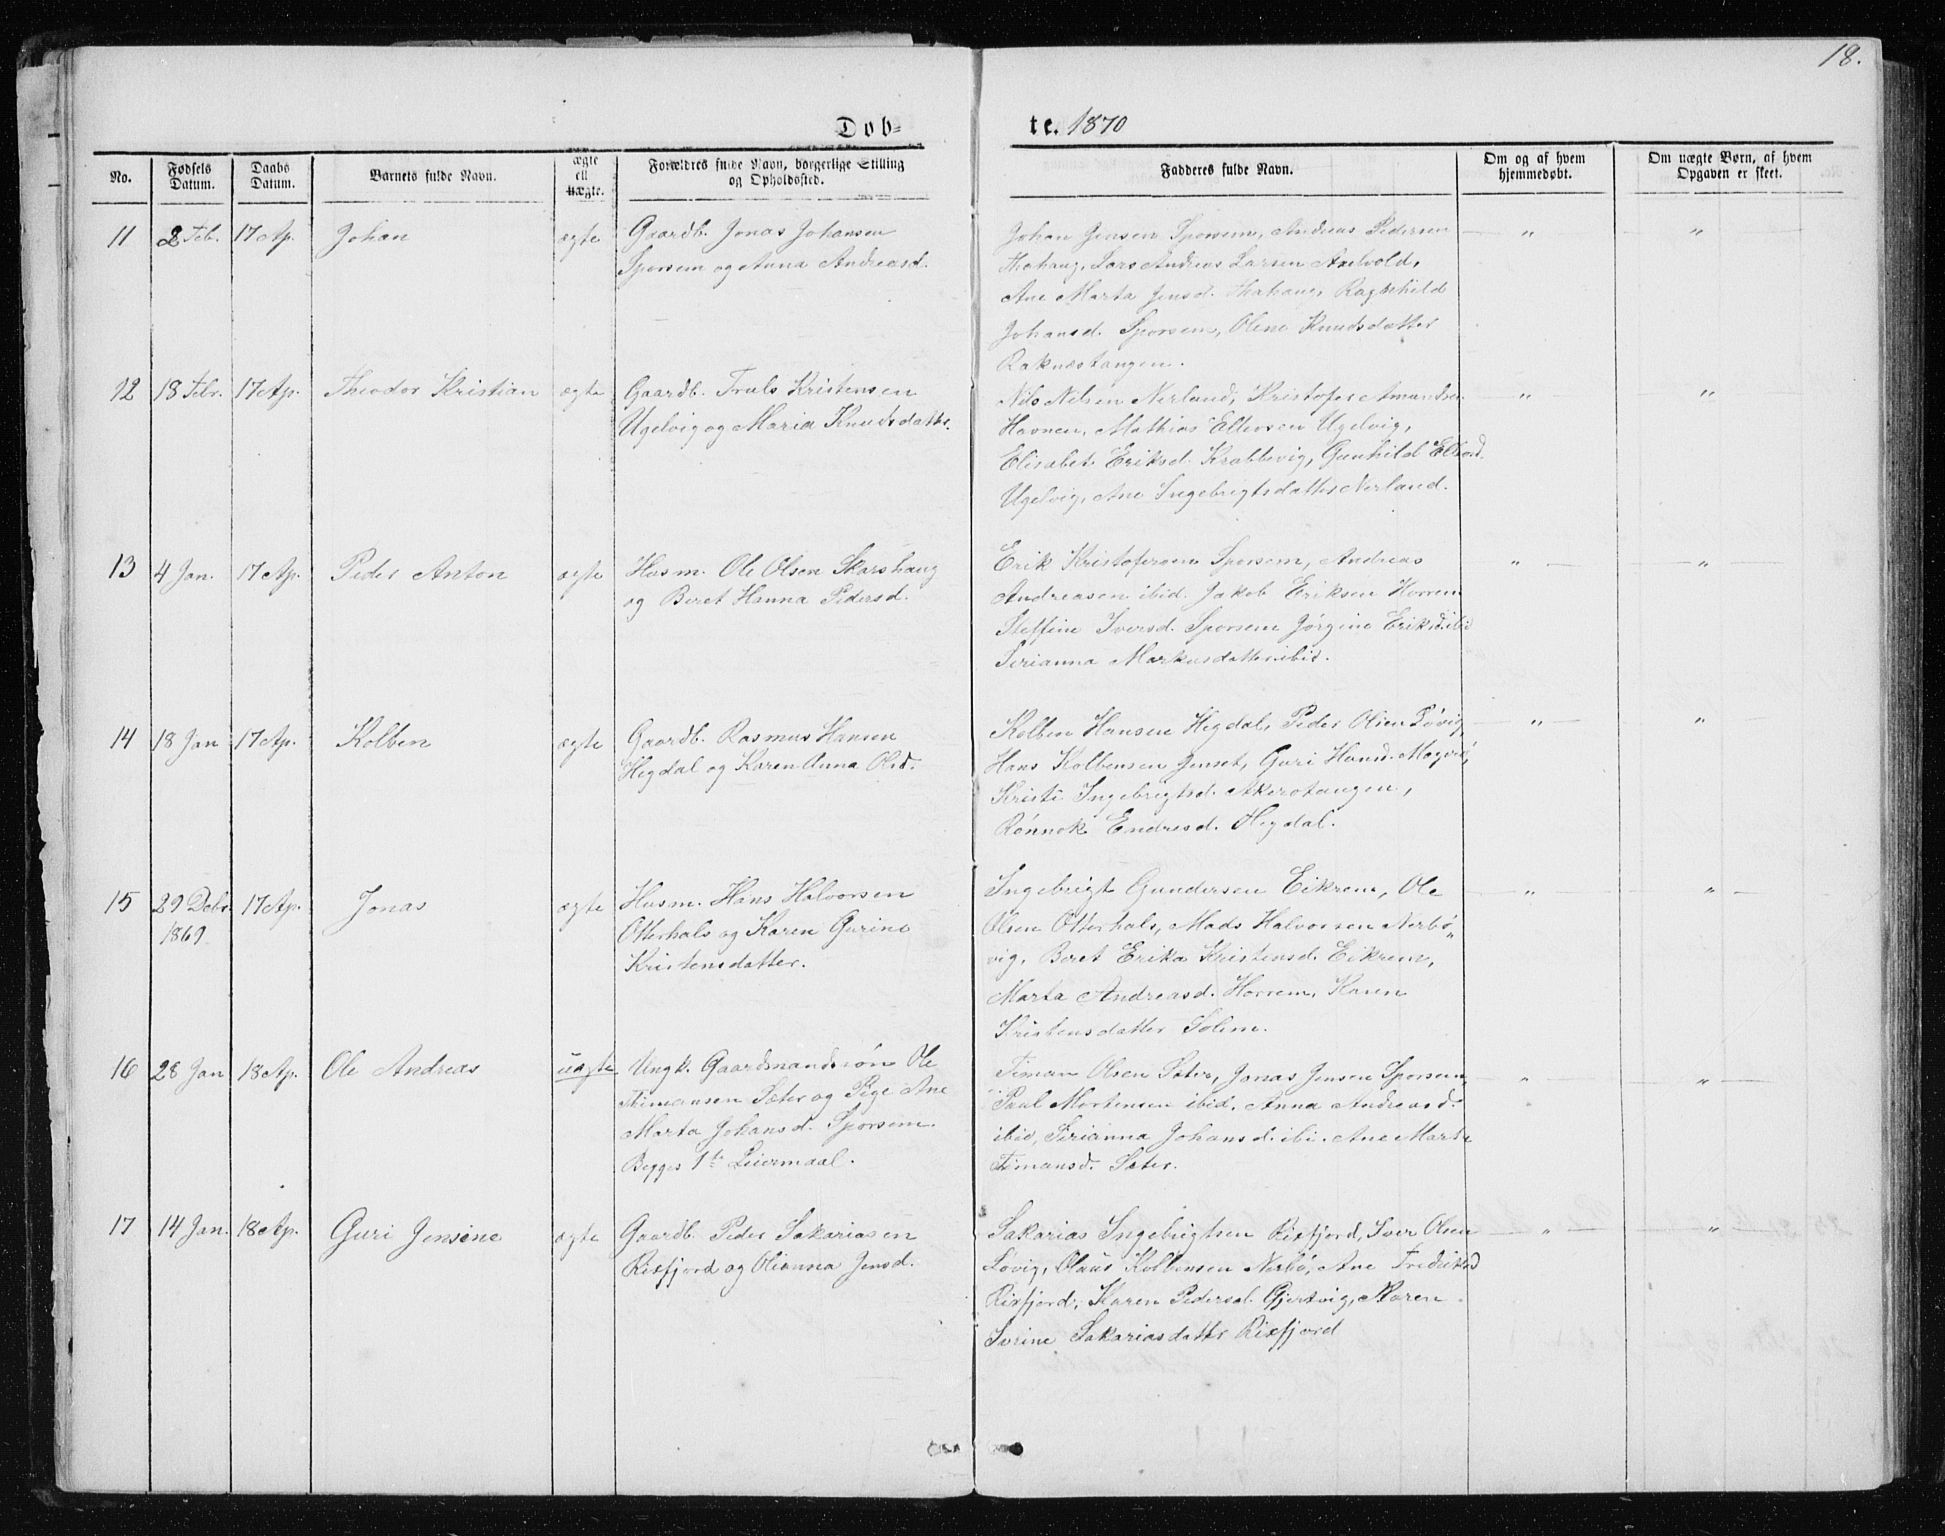 18.
Dob=
te. 1870
No.
Fødsels Datum.
Daabs Datum.
Barnets fulde Navn.
ægte ell uægte.
Forældres fulde Navn, borgerlige Stilling og Opholdssted.
Fadderes fulde Navn.
Om og af hvem hjemmedøbt.
Om uægte Børn, af hvem Opgaven er skeet.
11 2 Feb. 17 Ap. Johan ægte
Gaardb. Jonas Johansen
Sporsem og Anna Andreasd.
Johan Jensen Sporsem, Andreas Pedersen
Thahaug, Lars Andreas Larsen Axelvold,
Ane Marta Jensd. Thahaug, Ragnhild
Johansd. Sporsem, Oline Knudsdatter
Raknestangen.
" "
12 18 Febr. 17 Ap. Theodor Kristian ægte
Gaardb. Truls Kristensen
Ugelvig og Maria Knudsdatter.
Nils Nelsen Nerland, Kristofer Amundsen
Havnen, Mathias Ellevsen Ugelvig,
Elisabet Eriksd. Krabbevig, Gunhild
Ugelvig, Ane Ingebrigtsdatter Nerland.
" "
13 4 Jan. 17 Ap. Peder Anton ægte
Husm. Ole Olsen Skarshaug
og Beret Hanna Pedersd.
Erik Kristofersen Sporsem, Andreas
Andreasen ibid. Jakob Eriksen Horrem
Steffine Iversd. Sporsem Jørgine Eriksd. ibid
Sirianna Markusdatter ibid.
" "
14 18 Jan 17 Ap. Kolben ægte
Gaardb. Rasmus Hansen
Hegdal og Karen Anna Olsd.
Kolben Hansen Hegdal, Peder Olsen Løvig,
Hans Kolbensen Jenset, Guri Hansd.
Kristi Ingebrigtsd. Akerstangen,
Rønnok Endresd. Hegdal.
" "
15 29 Debr. 17 Ap. Jonas ægte
1869
Husm. Hans Halvorsen
Otterhals og Karen Gurine
Kristensdatter.
Ingebrigt Gundersen Eikrem, Ole
Olsen Otterhals, Mads Halvorsen Nerbø„
vig, Beret Erika Kristensd. Eikrem,
Marta Andreasd. Horrem, Karen
Kristensdatter Solem.
" "
16 28 Jan 18 Ap. Ole Andreas uægte
Ungk. Gaardmandssøn Ole
Timansen Sæter og Pige Ane
Marta Johansd. Sporsem.
Begges 1ste Leiermaal.
Timan Olsen Sæter, Jonas Jensen Sporsem,
Paul Mortensen ibid, Anna Andreasd.
ibid, Sirianna Johansd. ibi. Ane Marta
Timansd. Sæter.
" "
17 14 Jan. 18 Ap. Guri Jensine ægte
Gaardb. Peder Sakariasen
Rixfjord og Olianna Jensd.
Sakarias Ingebrigtsen Rixfjord, Iver Olsen
Løvig, Olaus Kolbensen Nerbø, Ane Fredriksd
Rixfjord, Karen Pedersd. Gjertvig, Maren
Sverine Sakariasdatter Rixfjord
" "